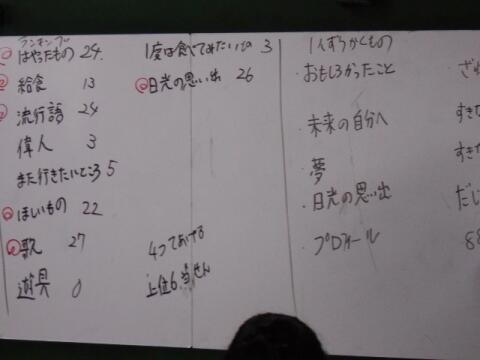 ランキング
はやったもの 24
給食 13
流行語 24
偉人 3
また行きたいところ 5
ほしいもの 22
歌 27
遊具 0
1度は食べてみたいもの 3
日光の思い出 26
4つてあげる
上位6 当せん
1人ずつかくもの
・おもしろかったこと
・未来の自分へ
・夢
・日光の思い出
・プロフィール
ざ
すきな
すきな
だい